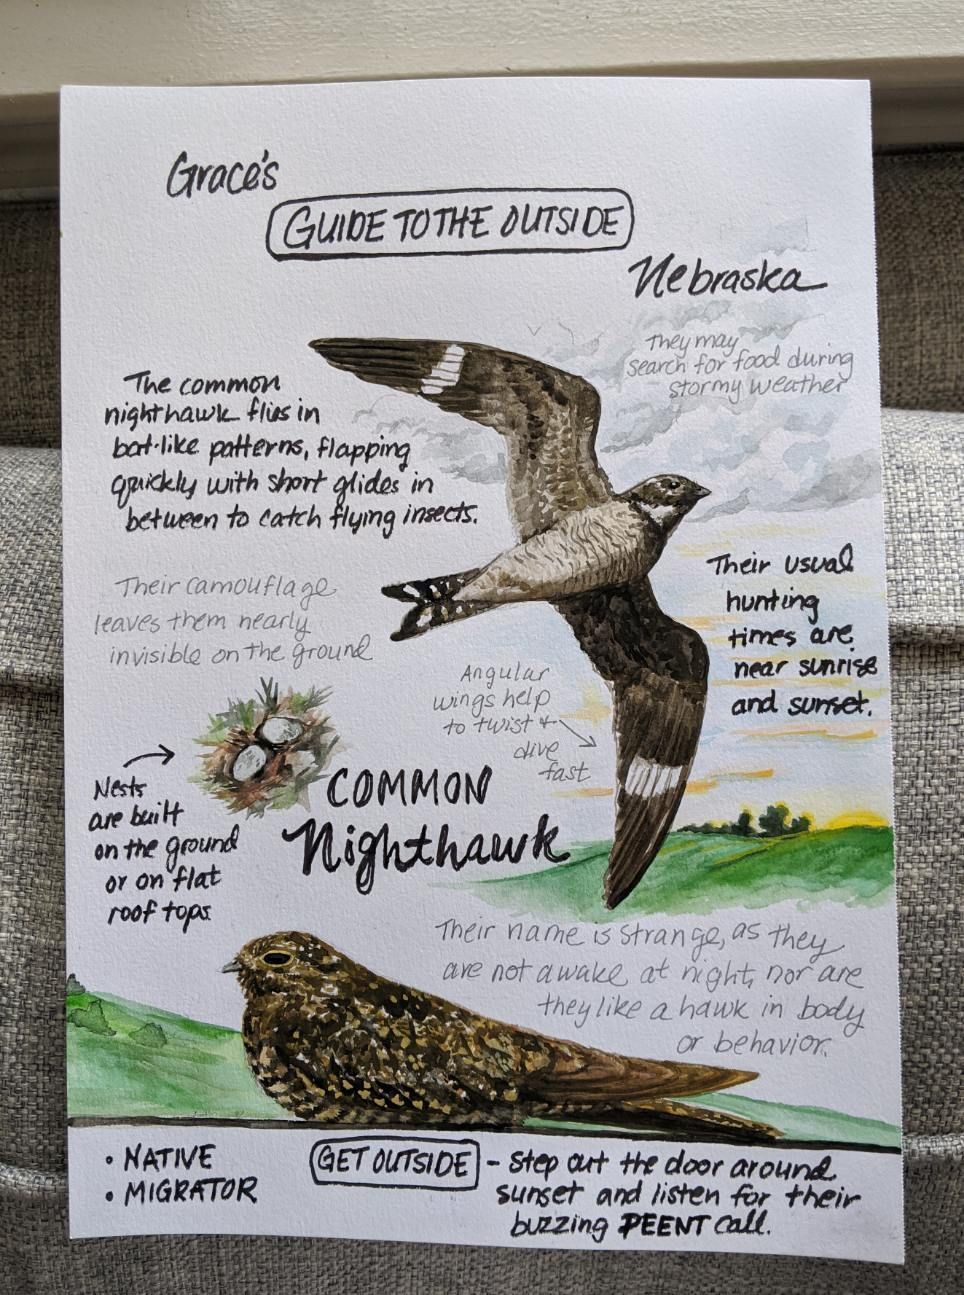 Grace's
GUIDE TO THE OUTSIDE
Nebraska
They may
search for food during
stormy weather
The common
nighthawk flies in
bat-like patterns, flapping
quickly with short glides in
between to catch flying insects.
Their camouflage
leaves them nearly
invisible on the ground
Their usual
hunting
times are
near sunrise
and sunset.
Angular
wings help
to twist +
dive
fast
Nests
are built
on the ground
or on flat
roof tops
COMMON
Nighthawk
Their name is strange, as they
are not awake at night, nor are
they like a hawk in body
or behavior.
• NATIVE
• MIGRATOR
GET OUTSIDE - Step out the door around
sunset and listen for their
buzzing PEENT call.